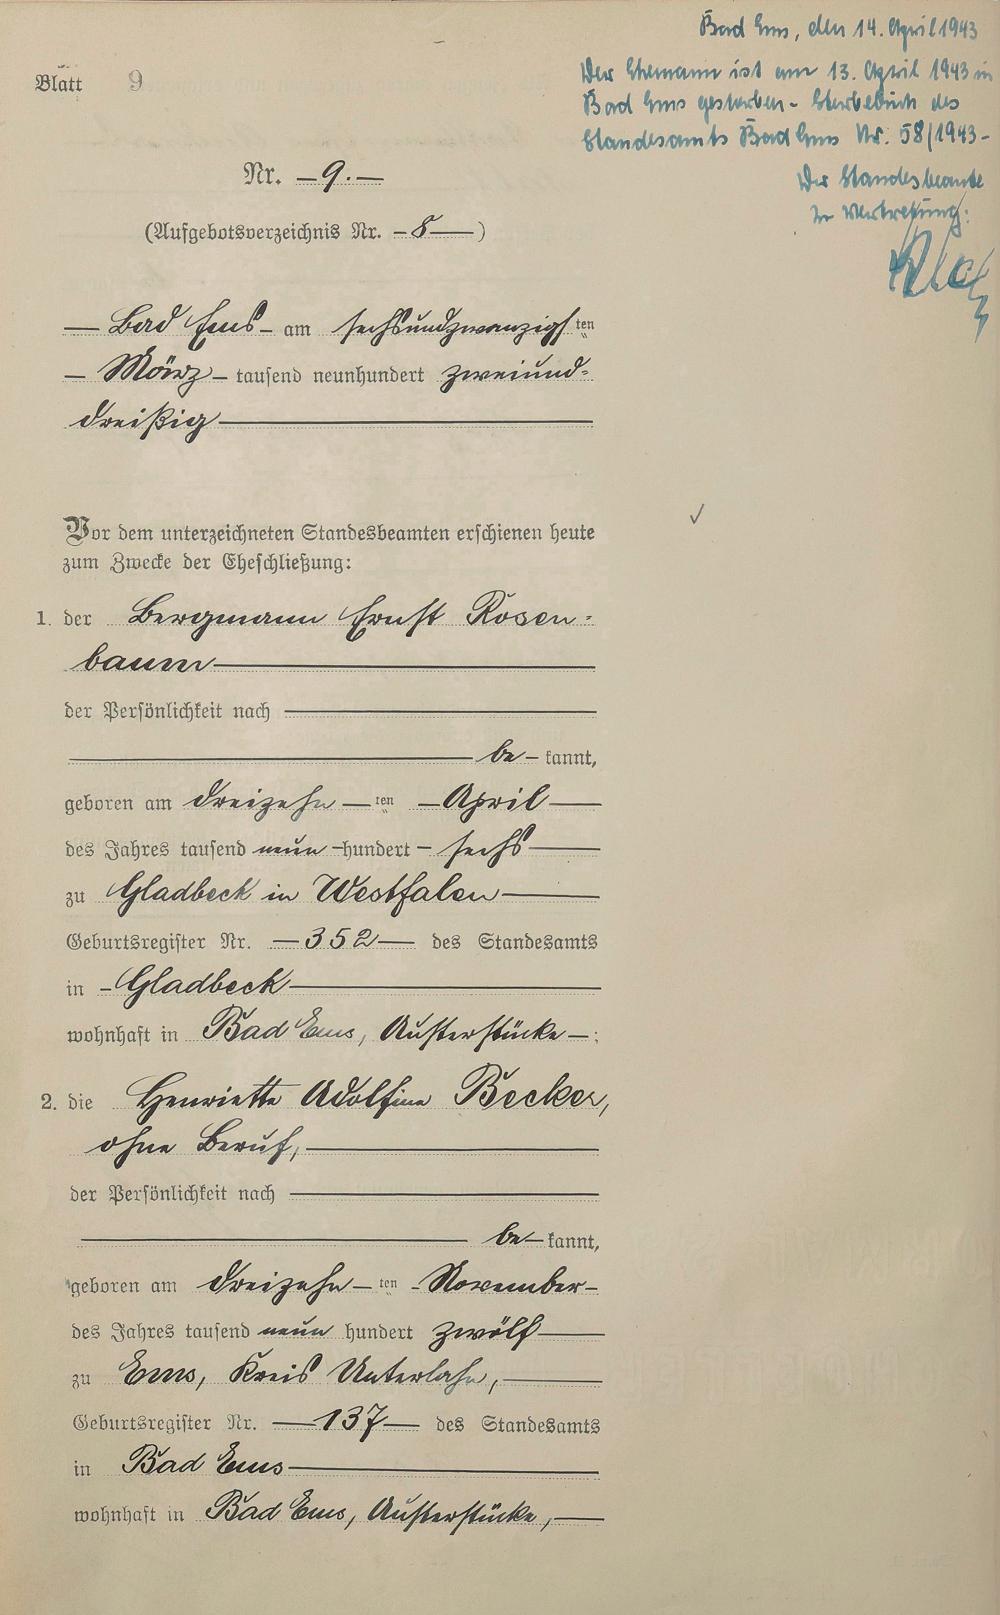 Bad Ems, den 14. April 1943
Der Ehemann ist am 13. April 1943 in
Bad Ems gestorben - Sterbebuch des
Standesamts Bad Ems Nr. 58/1943 -
Der Standesbeamte
In Vertretung:
Blatt 9
Nr. — 9. —
(Aufgebotsverzeichnis Nr. — 8 — )
— Bad Ems — am sechsundzwanzigsten
— März — tausend neunhundert zweiund-
dreißig
Vor dem unterzeichneten Standesbeamten erschienen heute
zum Zwecke der Eheschließung:
1. der Bergmann Ernst Rosen-
baum
der Persönlichkeit nach
be — kannt,
geboren am dreizehn — ten — April —
des Jahres tausend neun — hundert — sechs —
zu Gladbeck in Westfalen —
Geburtsregister Nr. — 352 — des Standesamts
in — Gladbeck —
wohnhaft in Bad Ems, Austerstücke — ;
2. die Henriette Adolfine Becker,
ohne Beruf,
der Persönlichkeit nach
be — kannt,
geboren am dreizehn — ten — November —
des Jahres tausend neun hundert zwölf —
zu Ems, Kreis Unterlahn, —
Geburtsregister Nr. — 137 — des Standesamts
in Bad Ems —
wohnhaft in Bad Ems, Austerstücke, —